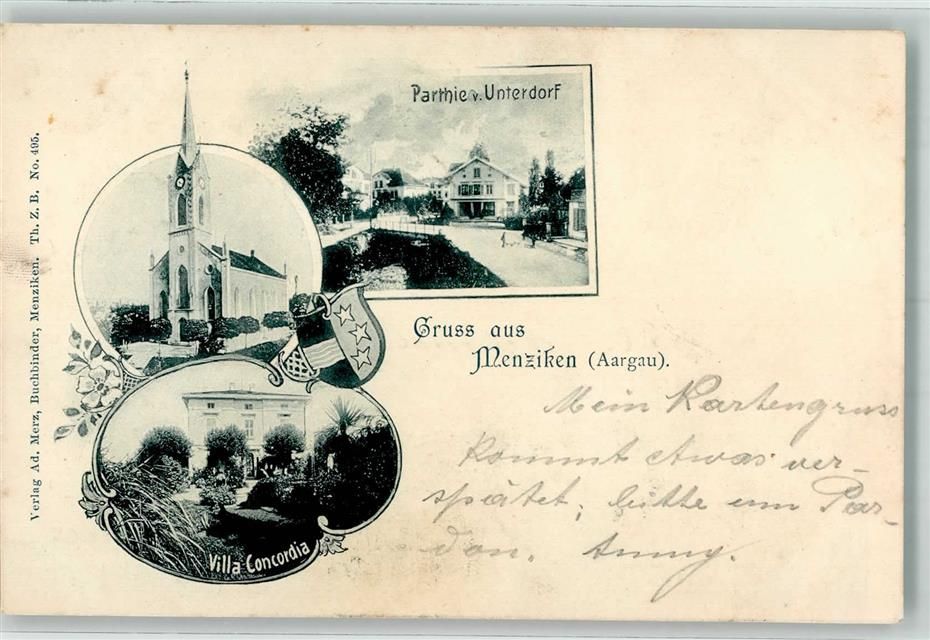 Verlag Ad. Merz, Buchbinder, Menziken. Th. Z. B. No. 495.
Parthie v. Unterdorf
Gruss aus
Menziken (Aargau).
Mein Kartengruss
kommt etwas ver-
spätet, bitte um Par-
don. Anny.
Villa Concordia